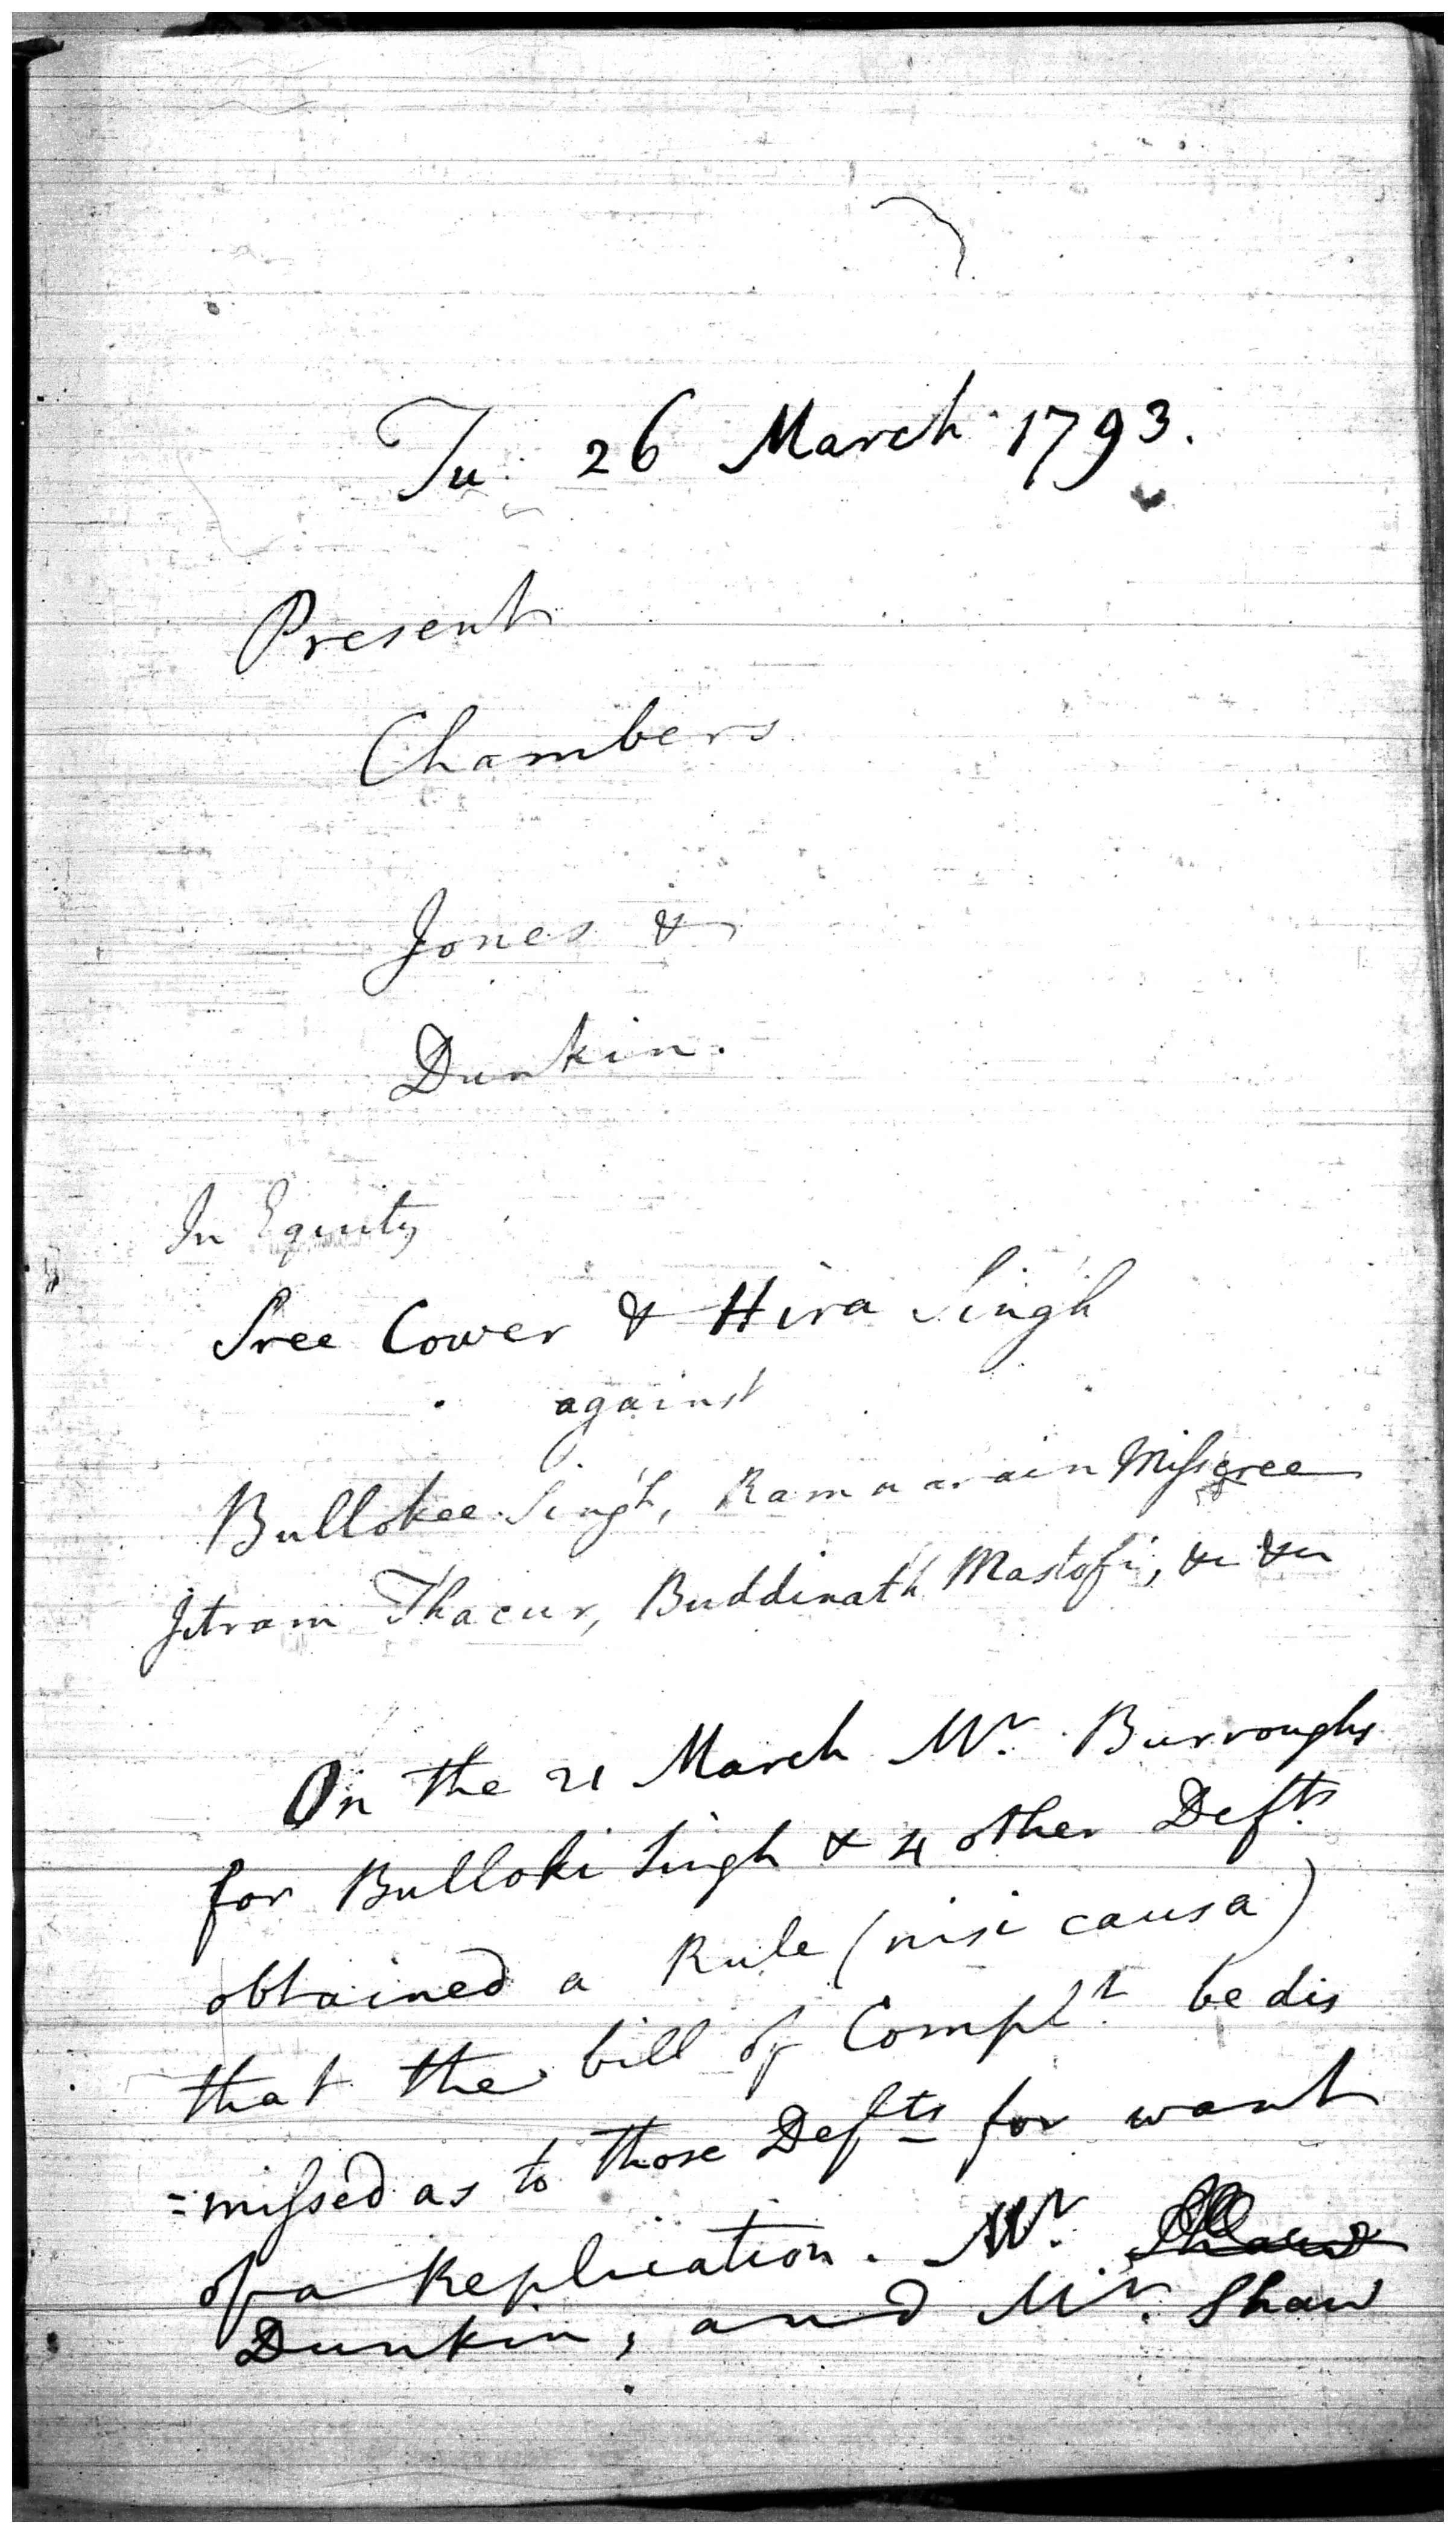 Tu. 26 March 1793.
Present
Chambers
Jones &
Dunkin.
In Equity
Sree Cower & Hira Singh
against
Bullokee Singh, Ramnarain
Jitram Thacur, Buddinath Mastofi, &c &c
On the 21 March Mr. Burroughs
for Bulloki Singh & 4 other Defts
obtained a Rule (nisi causa)
that the bill of Complt. be dis
=missed as to those Defts for want
of a Replication. Mr. Shaw
Dunkin, and Mr. Shaw